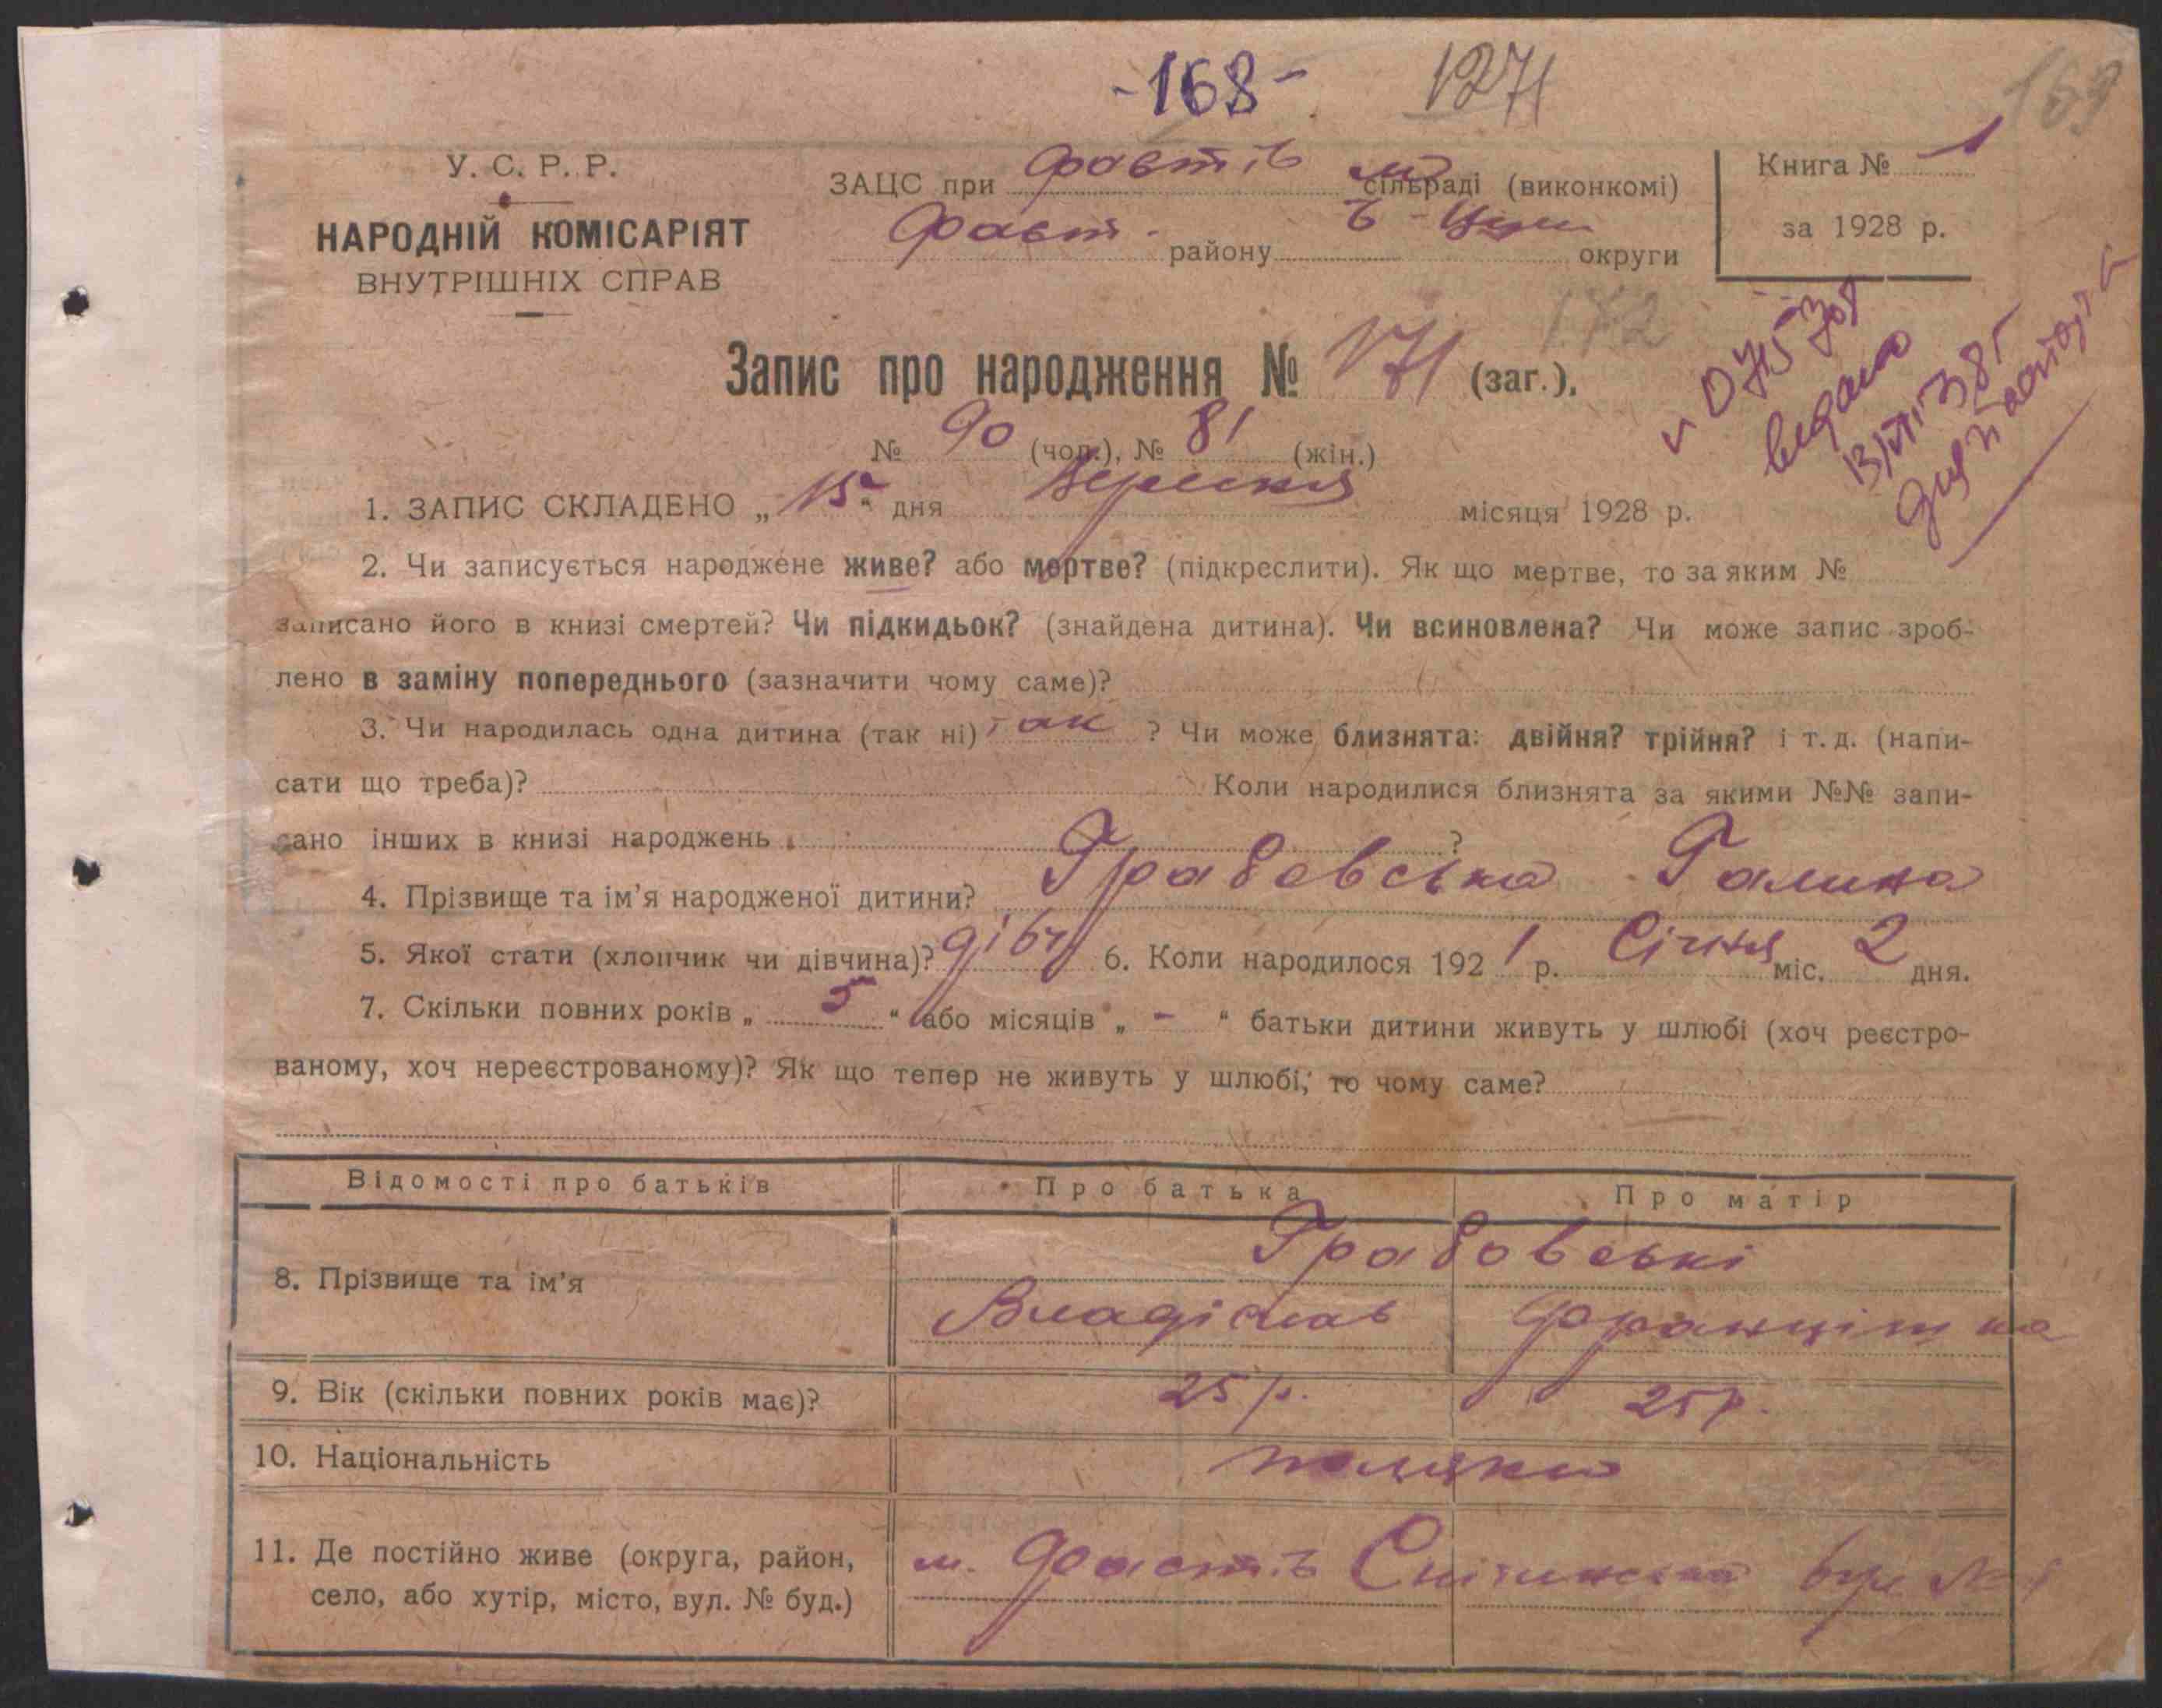 -168- 1271
169
У. С. Р. Р.
НАРОДНІЙ КОМІСАРІЯТ
ВНУТРІШНІХ СПРАВ
ЗАЦС при Фастів м сільраді (виконкомі)
Фаст. району Б-Церк округи
Книга № 1
за 1928 р.
172
Запис про народження № 171 (заг.),
№ 90 (чол.), № 81 (жін.)
видано
1. ЗАПИС СКЛАДЕНО „ 15 “ дня Вересня місяця 1928 р.
2. Чи записується народжене живе? або мертве? (підкреслити). Як що мертве, то за яким №
записано його в книзі смертей? Чи підкидьок? (знайдена дитина). Чи всиновлена? Чи може запис зроб-
лено в заміну попереднього (зазначити чому саме)?
3. Чи народилась одна дитина (так ні) так ? Чи може близнята: двійня? трійня? і т. д. (напи-
сати що треба)? Коли народилися близнята за якими №№ запи-
сано інших в книзі народжень ?
4. Прізвище та ім’я народженої дитини? Грабовська Галина
5. Якої стати (хлопчик чи дівчина)? дівч 6. Коли народилося 1921 р. Січня міс. 2 дня.
7. Скільки повних років „ 5 “ або місяців „ - “ батьки дитини живуть у шлюбі (хоч реєстро-
ваному, хоч нереєстрованому)? Як що тепер не живуть у шлюбі, то чому саме?
Відомості про батьків Про батька Про матір
8. Прізвище та ім’я Грабовські
Владіслав Францішка
9. Вік (скільки повних років має)? 25 р. 25 р.
10. Національність поляки
11. Де постійно живе (округа, район,
село, або хутір, місто, вул. № буд.)
м. Фастів вул №